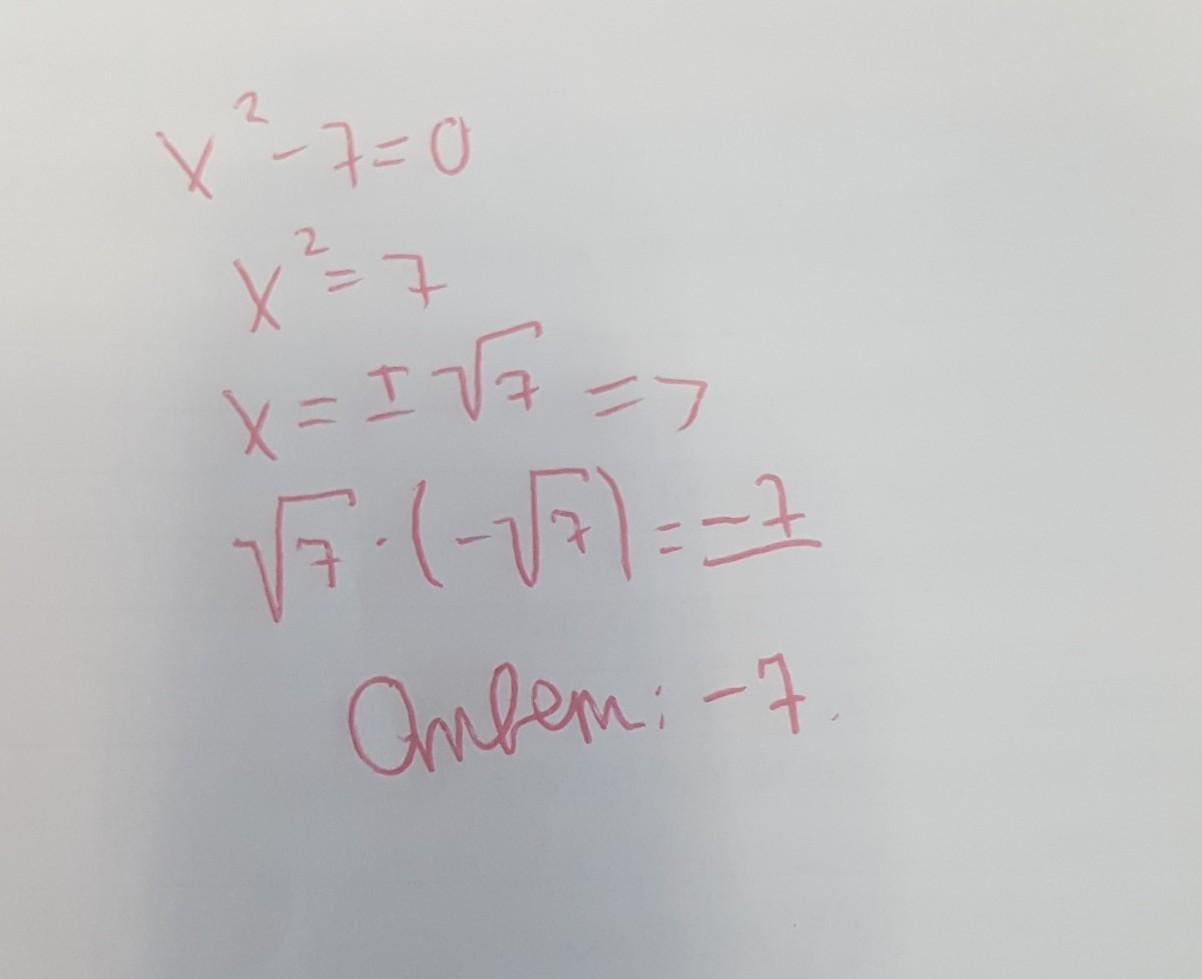 x² - 7 = 0
x² = 7
x = ± √7 =>
√7 · (-√7) = -7
Ответ: -7.